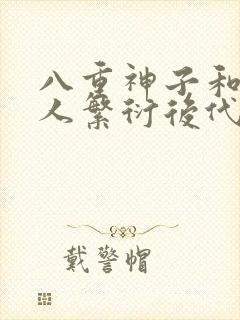 八重神子和
人繁衍後代
戴警帽